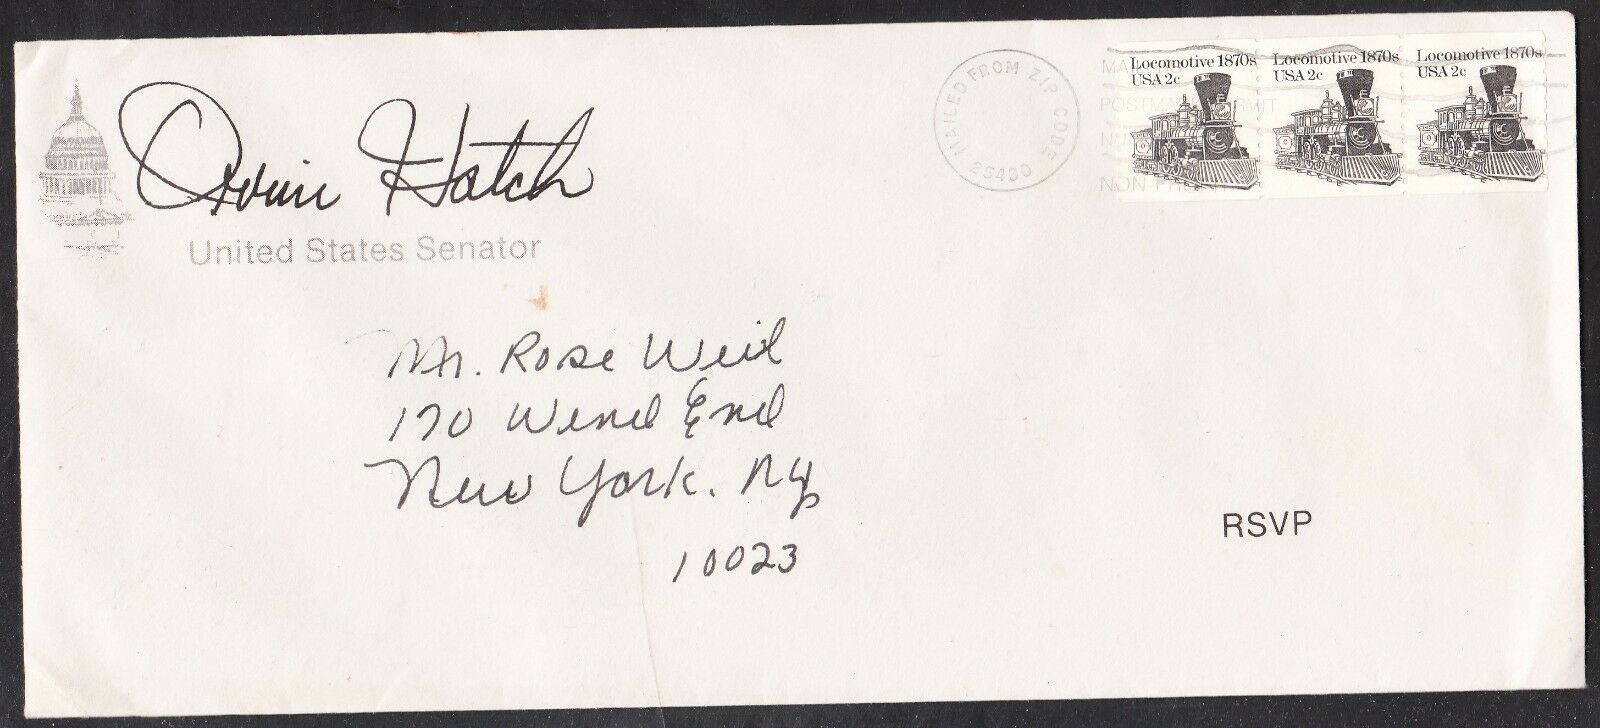 Orrin Hatch
United States Senator
MAILED FROM ZIP CODE
25430
Locomotive 1870s
USA 2c
Locomotive 1870s
USA 2c
Locomotive 1870s
USA 2c
NON PR
Mr. Rose Weil
170 Wend End
New York, Ny
10023
RSVP